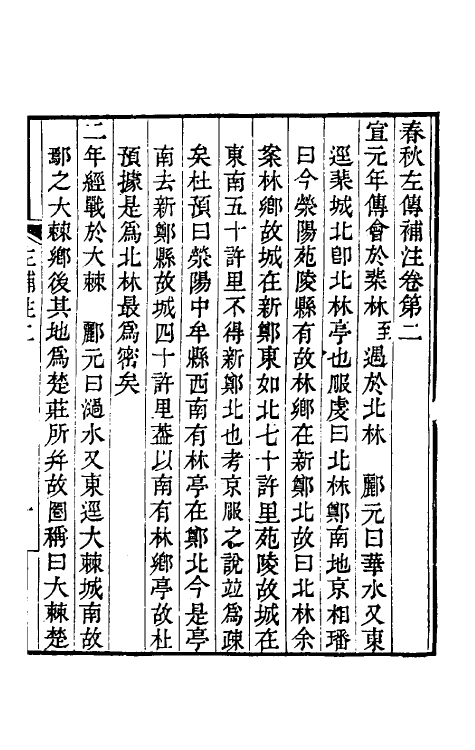 春秋左傳補注卷第二
宣元年傳會於棐林至遇於北林　酈元曰華水又東
逕棐城北卽北林亭也服虔曰北林鄭南地京相璠
曰今滎陽苑陵縣有故林鄉在新鄭北故曰北林余
案林鄉故城在新鄭東如北七十許里苑陵故城在
東南五十許里不得新鄭北也考京服之說竝爲疎
矣杜預曰滎陽中牟縣西南有林亭在鄭北今是亭
南去新鄭縣故城四十許里葢以南有林鄉亭故杜
預據是爲北林最爲密矣
二年經戰於大棘　酈元曰濄水又東逕大棘城南故
鄢之大棘鄉後其地爲楚莊所幷故圈稱曰大棘楚
左補注二
一